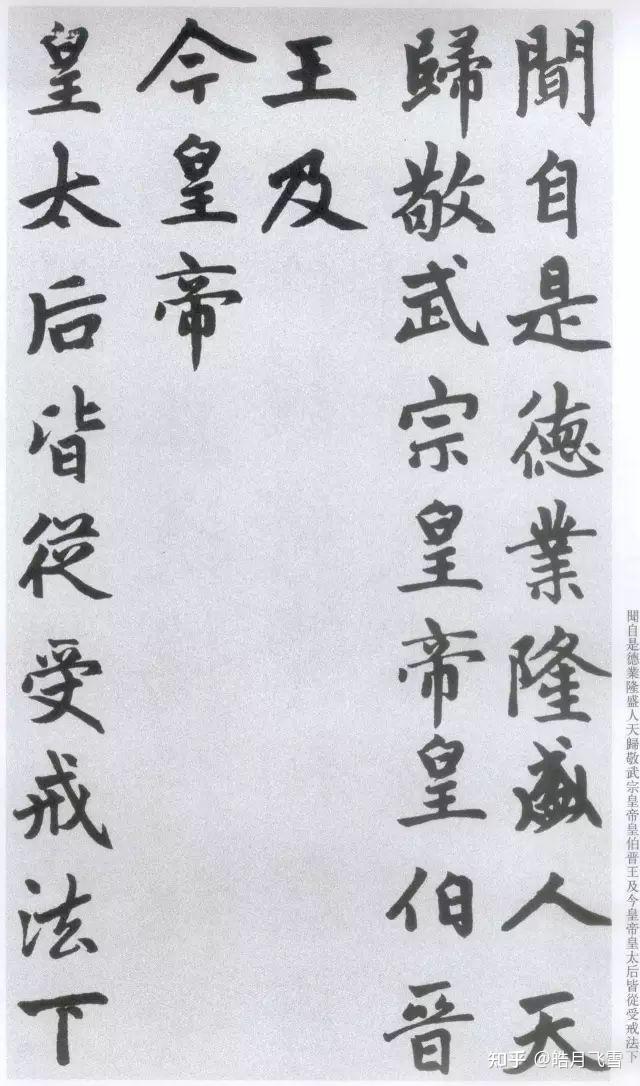 聞自是德業隆盛人天
歸敬武宗皇帝皇伯晉
王及
今皇帝
皇太后皆從受戒法下
聞自是德業隆盛人天歸敬武宗皇帝皇伯晉王及今皇帝皇太后皆從受戒法下
知乎 @皓月飞雪